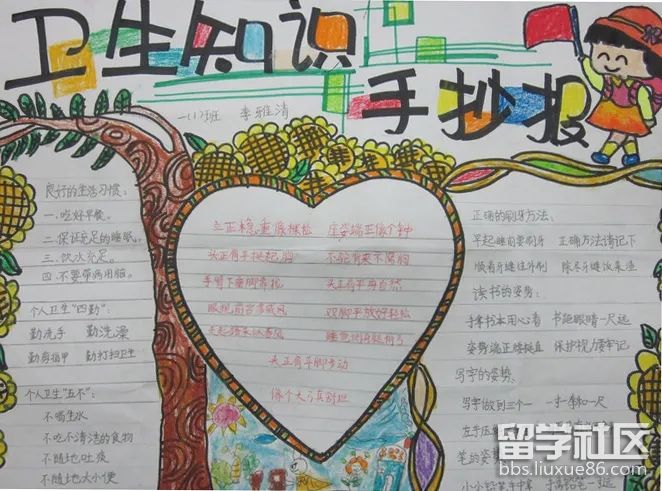 卫生知识
手抄报
一(1)班 李雅清
良好的生活习惯：
一.吃好早餐。
二.保证充足的睡眠。
三.饮水充足。
四.不要带病用脑。
个人卫生“四勤”：
勤洗手 勤洗澡
勤剪指甲 勤打扫卫生
个人卫生“五不”：
不喝生水
不吃不清洁的食物
不随地吐痰
不随地大小便
立正稳重像棵松 坐姿端正像个钟
头正肩平挺起胸
手臂下垂脚靠拢 头正肩平再自然
双脚平放好轻松
头正肩平脚步动
正确的刷牙方法：
早起睡前要刷牙 正确方法请记下
顺着牙缝往外刷 除尽牙缝饭菜渣
读书的姿势：
手拿书本用心看 书距眼睛一尺远
姿势端正腰挺直 保护视力要牢记
写字的姿势：
写字做到三个一 一寸一拳和一尺
左手压
笔的姿势
留学社区
bbs.liuxue86.com